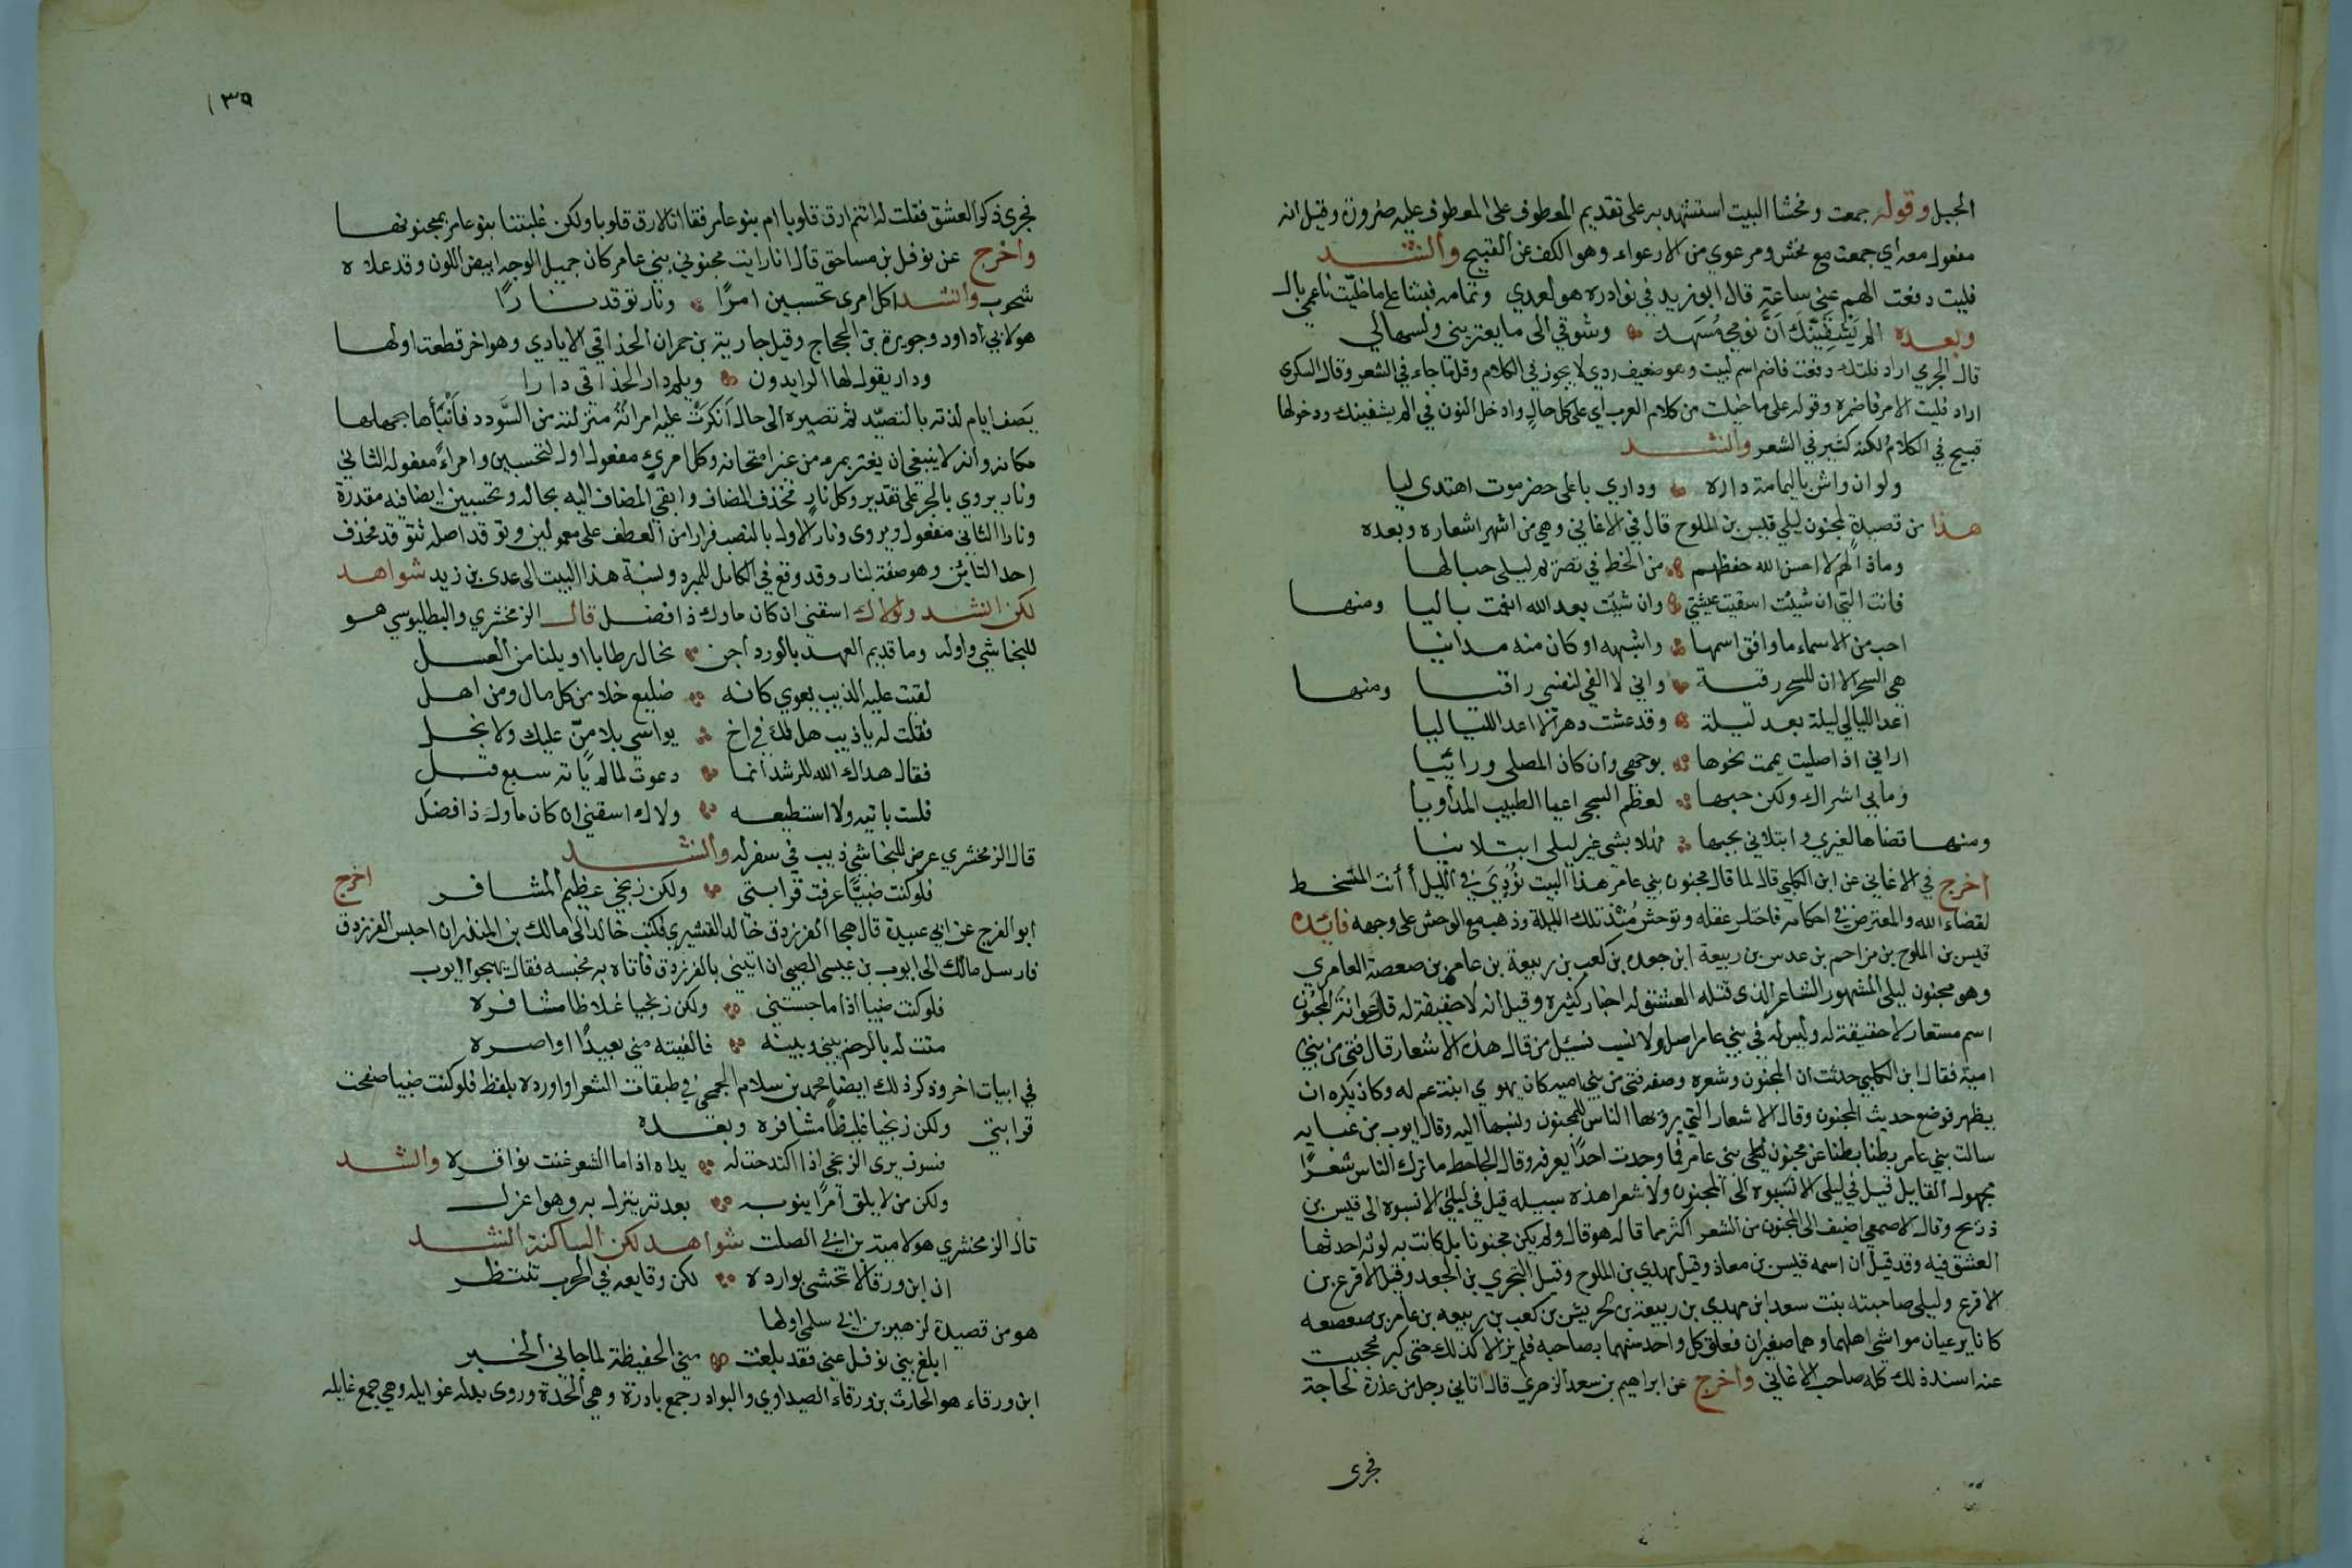 الجبل وقوله جمعت وفحشا البيت استشهد به على تقديم المعطوف على المعطوف عليه ضرورة وقيل انه
مفعول معه اي جمعت مع فحش ومرعوي من الارعواء وهو الكف عن القبيح وانشد
فليت دفعت الهم عني ساعة قال ابو زيد في نوادره هو لعدي وتمامه فبتنا على ما خيلت ناعمي بال
وبعده الم يشفينك ان نومي مسهد وشوقي الى ما يعتريني وتسهالي
قال الجرمي اراد فلتك دفعت فاضمر اسم ليت وهو ضعيف ردي لا يجوز في الكلام وقلما جاء في الشعر وقال السكري
اراد فليت الامر فاضمره وقوله على ما خيلت من كلام العرب اي على كل حال وادخل النون في الم يشفينك ودخولها
قبيح في الكلام لكنه كثير في الشعر وانشد
ولو ان واش باليمامة داره وداري باعلى حضرموت اهتدى ليا
هذا من قصيدة لمجنون ليلى قيس بن الملوح قال في الاغاني وهي من اشهر اشعاره وبعده
وماذا لهم لا احسن الله حفظهم من الحظ في تصريم ليلى حباليا
فانت التي ان شئت اشقيت عيشتي وان شئت بعد الله انعمت باليا ومنها
احب من الاسماء ما وافق اسمها واشبهه او كان منه مدانيا
هي السحر الا ان للسحر رقية واني لا الفي لنفسي راقيا ومنها
اعد الليالي ليلة بعد ليلة وقد عشت دهرا لا اعد اللياليا
اراني اذا صليت يممت نحوها بوجهي وان كان المصلى ورائيا
وما بي اشراك ولكن حبها لعظم الشجى اعيا الطبيب المداويا
ومنها قضاها لغيري وابتلاني بحبها فهلا بشي غير ليلى ابتلانيا
اخرج في الاغاني عن ابن الكلبي قال لما قال مجنون بني عامر هذا البيت نودي في الليل أأنت المتسخط
لقضاء الله والمعترض في احكامه فاختلس عقله وتوحش منذ تلك الليلة وذهب مع الوحش على وجهه فائده
قيس بن الملوح بن مزاحم بن عدس بن ربيعة ابن جعده بن كعب بن ربيعة بن عامر بن صعصة العامري
وهو مجنون ليلى المشهور الشاعر الذي قتله العشق له اخبار كثيرة وقيل انه لا حقيقة له قال عوانة المجنون
اسم مستعار لا حقيقة له وليس له في بني عامر اصل ولا نسب فسئل من قال هذه الاشعار قال فتى من بني
امية فقال ابن الكلبي حدثت ان المجنون وشعره وصفه فتى من بني اميه كان يهوي ابنة عم له وكان يكره ان
يظهر فوضع حديث المجنون وقال الاشعار التي يرويها الناس للمجنون ونسبها اليه وقال ايوب بن عبايه
سالت بني عامر بطنا بطنا عن مجنون ليلى بني عامر فما وجدت احدا يعرفه وقال الجاحظ ما ترك الناس شعرا
مجهول القايل قيل في ليلى الا نسبوه الى المجنون ولا شعرا هذه سبيله قيل في لبنى الا نسبوه الى قيس بن
ذريح وقال الاصمعي اضيف الى المجنون من الشعر اكثر مما قاله هو قال ولم يكن مجنونا بل كانت به لوثه احدثها
العشق فيه وقد قيل ان اسمه قيس بن معاذ وقيل مهدي بن الملوح وقيل البحتري بن الجعد وقيل الاقرع بن
الاقرع وليلى صاحبته بنت سعد ابن مهدي بن ربيعة بن الحريش بن كعب بن ربيعه بن عامر بن صعصعه
كانا يرعيان مواشي اهلهما وهما صغيران فعلق كل واحد منهما بصاحبه فلم يزالا كذلك حتى كبر فحجبت
عنه اسند ذلك كله صاحب الاغاني واخرج عن ابراهيم بن سعد الزهري قال اتاني رجل من عذرة لحاجة
فجرى
١٣٩
فجرى ذكر العشق فقلت له انتم ارق قلوبا ام بنو عامر فقا انا لارق قلوبا ولكن غلبتنا بنو عامر بمجنونها
واخرج عن نوفل بن مساحق قال انا رايت مجنوني بني عامر كان جميل الوجه ابيض اللون وقد علاه
شحوب وانشد اكل امرى تحسبين امرا ونار توقد نارا
هو لابي اداود وجويرة بن الحجاج وقيل جارية بن حمران الحذاقي الايادي وهو اخر قطعت اولها
ودار يقول لها الرايدون ويلم دار الحذاقي دارا
يصف ايام لذته بالتصيد ثم تصيره الى حال انكرت عليه امراته منزلته من السودد فانبأها بجهلها
مكانه وانه لا ينبغي ان يغتر بمرء من غير امتحانه وكل امرئ مفعول اول لتحسبين وامراء مفعوله الثاني
ونار يروي بالجر على تقدير وكل نار فحذف المضاف وابقي المضاف اليه بحاله وتحسبين ايضا فيه مقدرة
ونارا الثاني مفعول ويروى ونارا الاول بالنصب فرارا من العطف على معمولين وتوقد اصله تتوقد فحذف
احد التائين وهو صفة لنار وقد وقع في الكامل للمبرد ونسبة هذا البيت الى عدي بن زيد شواهد
لكن انشد ولاك اسقني ان كان ماوك ذا فضل قال الزمخشري والبطليوسي هو
للنجاشي واوله وماء قديم العهد بالورد اجن تخال رطابا او يلنا من العسل
لقيت عليه الذيب يعوي كانه ضليع خلا من كل مال ومن اهل
فقلت له ياذيب هل لك في اخ يواسي بلا من عليك ولا بخل
فقال هداك الله للرشد انما دعوت لما لم ياته سبع قبل
فلست باتيه ولا استطيعه ولاك اسقني ان كان ماوك ذا فضل
قال الزمخشري عرض للنجاشي ذيب في سفر له وانشد
فلو كنت ضبيا عرفت قرابتي ولكن زنجي عظيم المشافر اخرج
ابو الفرج عن ابي عبيدة قال هجا الفرزدق خالد القشيري فكتب خالد الى مالك بن المنذر ان احبس الفرزدق
فارسل مالك الى ايوب بن عيسى الضبي ان اتيني بالفرزدق فاتاه به فحبسه فقال يهجوا ايوب
فلو كنت ضبيا اذا ما حبستني ولكن زنجيا غلاظا مشافره
متت له بالرحم بيني وبينه فالفيته مني بعيدا اواصره
في ابيات اخر وذكر ذلك ايضا محمد بن سلام الجمحي في طبقات الشعرا واورده بلفظ فلو كنت ضبيا صفحت
قرابتي ولكن زنجيا غليظا مشافره وبعده
فسوف يرى الزنجي اذا اكتدحت له يداه اذا ما الشعر غنت نواقره وانشد
ولكن من لا يلق امرا ينوبه بعدته ينزل به وهو اعزل
قال الزمخشري هو لامية بن ابي الصلت شواهد لكن الساكنة انشد
ان ابن ورقا لا تخشى بوارده لكن وقايعه في الحرب تنتظر
هو من قصيدة لزهير بن ابي سلمى اولها
ابلغ بني نوفل عني فقد بلغت مني الحفيظة لما جاني الخبر
ابن ورقاء هو الحارث بن ورقاء الصيداوي والبوادر جمع بادرة وهي الحدة وروى بدله غوايله وهي جمع غايله